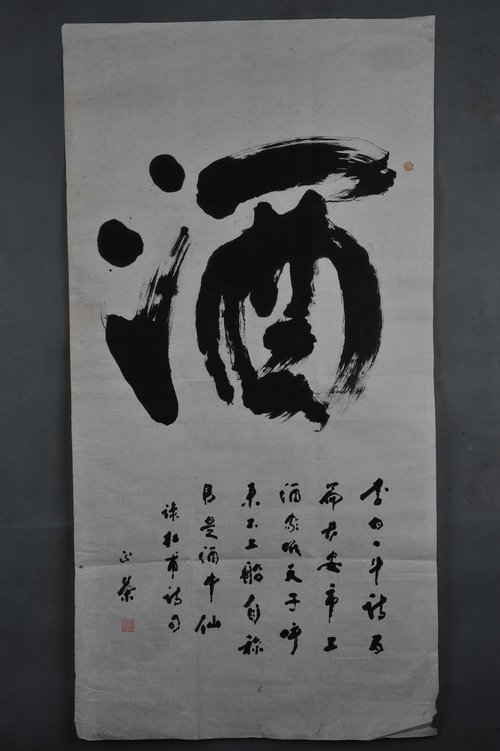 酒
李白一斗诗百
篇长安市上
酒家眠天子呼
来不上船自称
臣是酒中仙
杜甫诗句